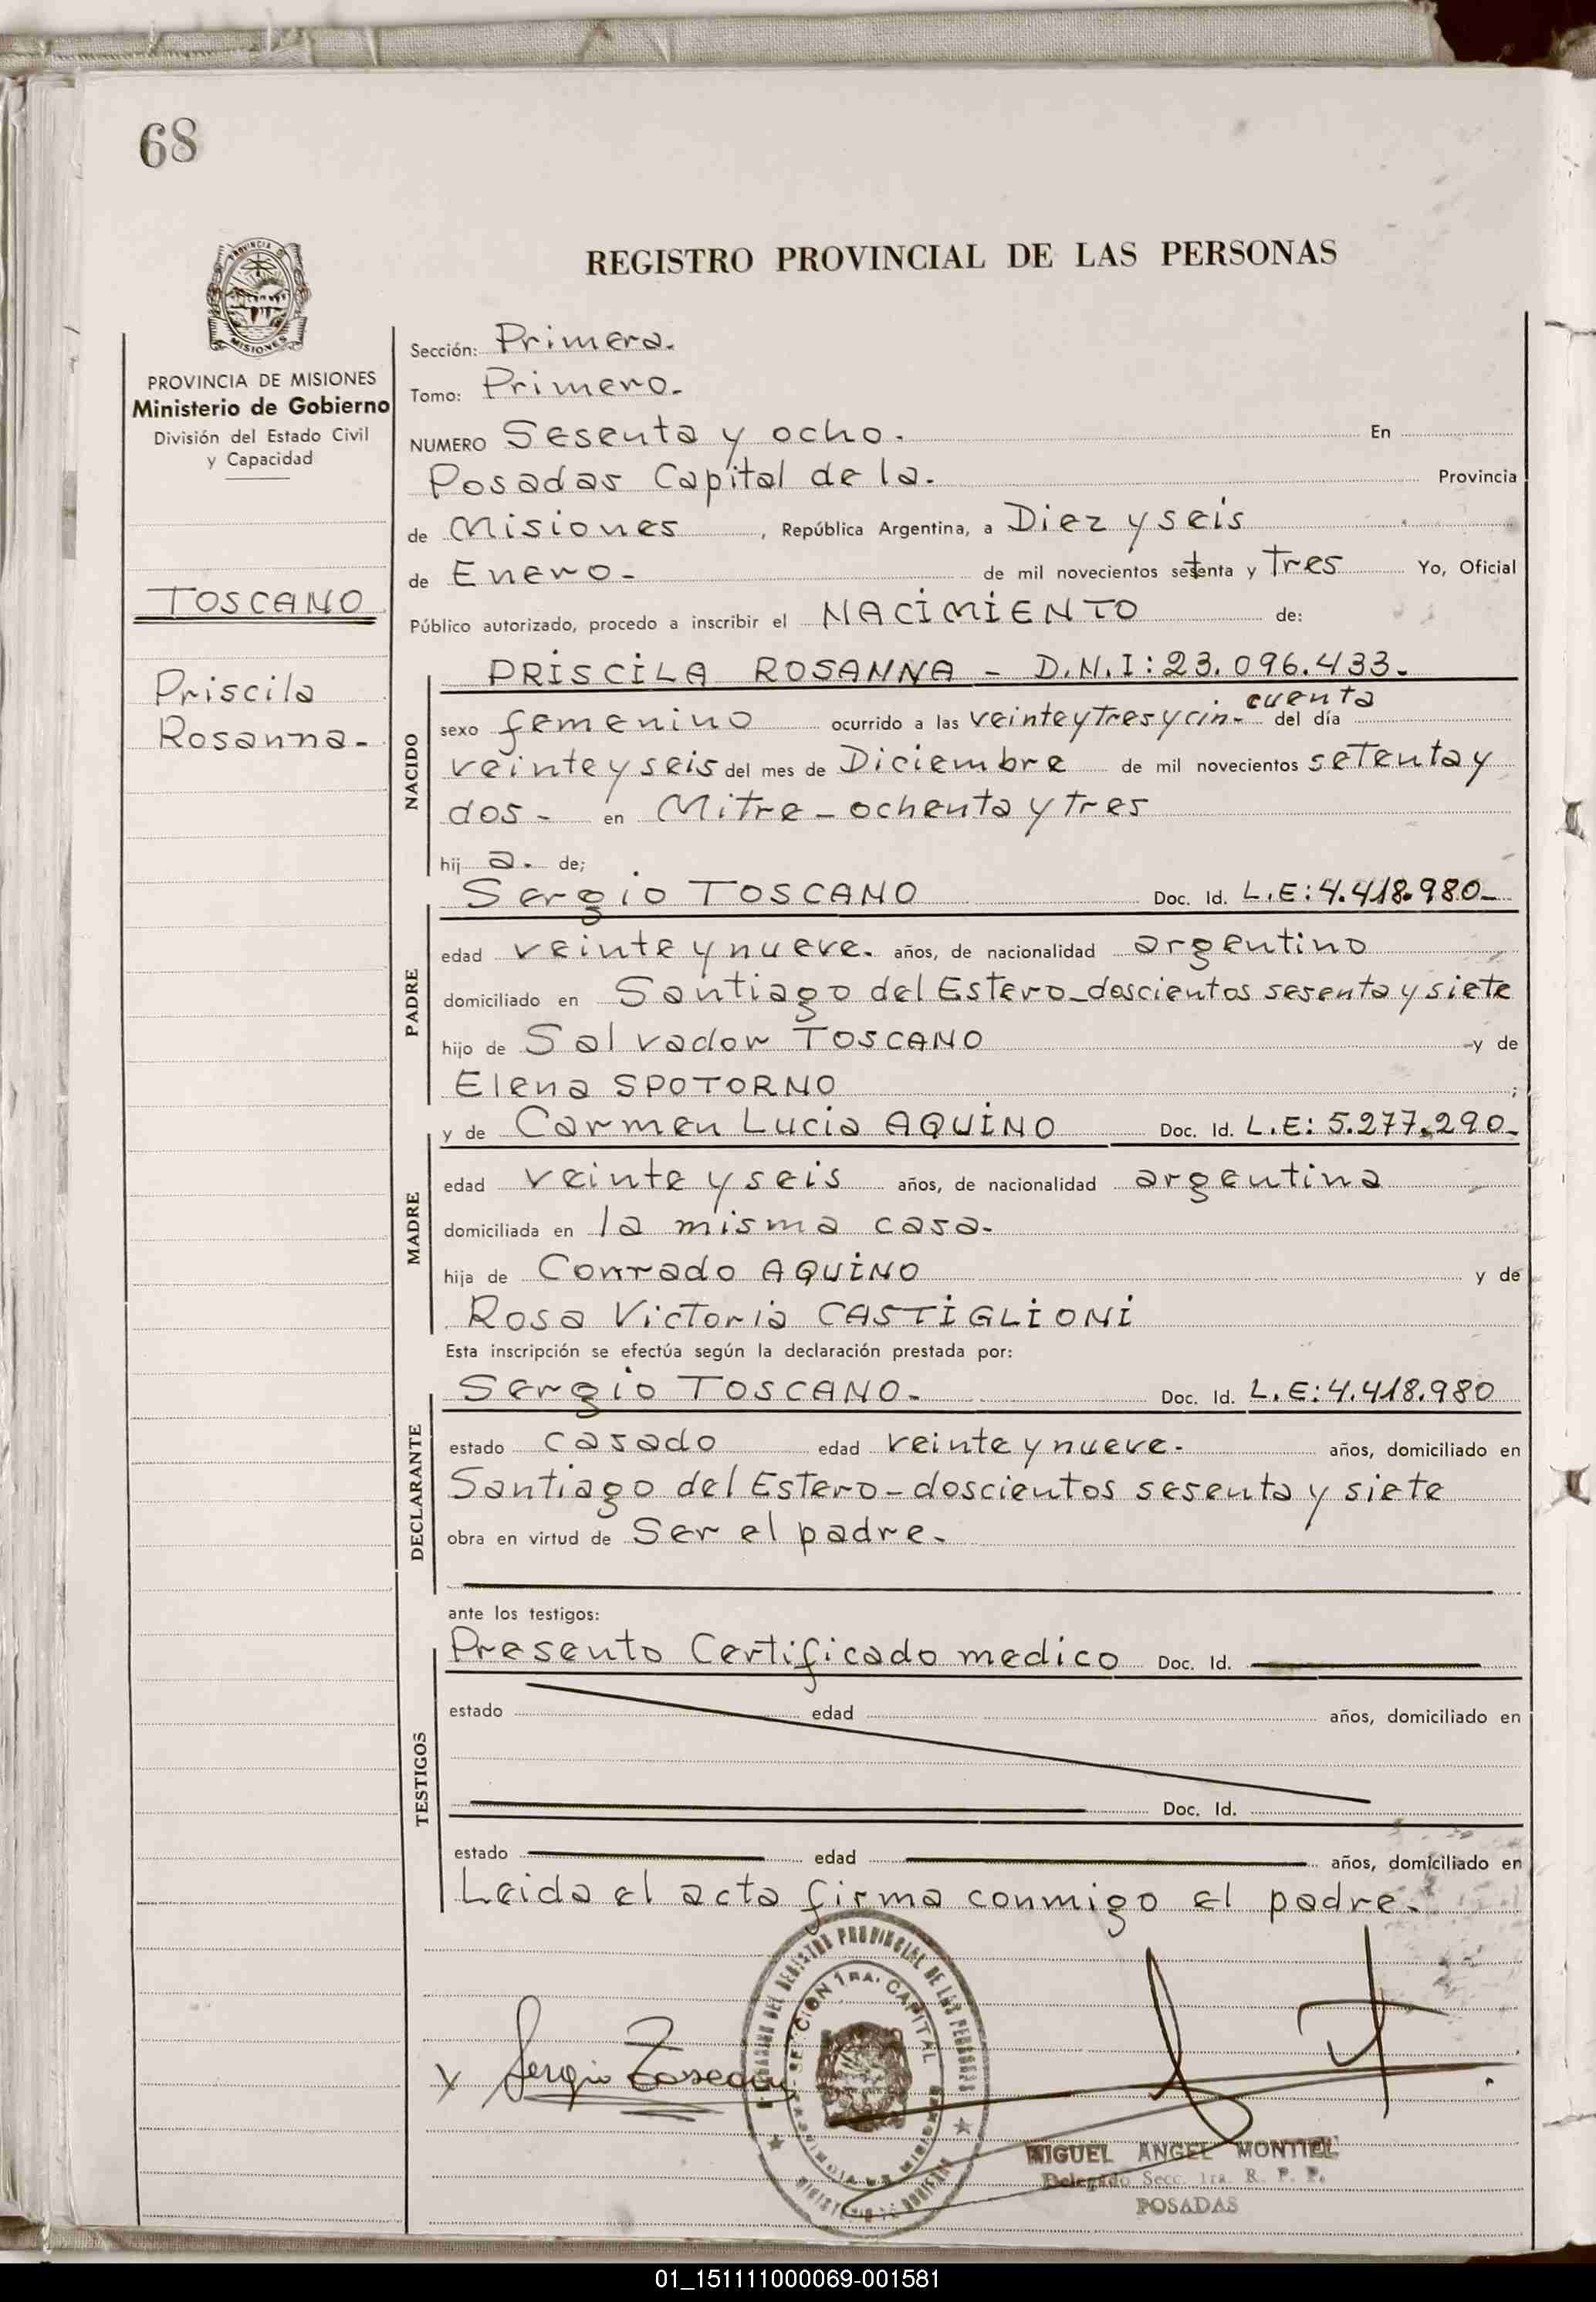 68
PROVINCIA DE
MISIONES
PROVINCIA DE MISIONES
Ministerio de Gobierno
División del Estado Civil
y Capacidad
TOSCANO
Priscila
Rosanna-
REGISTRO PROVINCIAL DE LAS PERSONAS
Sección: Primera.
Tomo: Primero.
NUMERO Sesenta y ocho. En
Posadas Capital de la. Provincia
de Misiones, República Argentina, a Diez y seis
de Enero- de mil novecientos setenta y Tres Yo, Oficial
Público autorizado, procedo a inscribir el NACIMIENTO de:
NACIDO
PRISCILA ROSANNA - D.N.I: 23.096.433.
cuenta
sexo femenino ocurrido a las veinte y Tres y cin- del día
veinte y seis del mes de Diciembre de mil novecientos setenta y
dos- en Mitre - ochenta y tres
hij a. de;
PADRE
Sergio TOSCANO Doc. Id. L.E: 4.418.980-
edad veinte y nueve. años, de nacionalidad argentino
domiciliado en Santiago del Estero-doscientos sesenta y siete
hijo de Salvador TOSCANO y de
Elena SPOTORNO ;
MADRE
y de Carmen Lucia AQUINO Doc. Id. L.E: 5.277.290-
edad veinte y seis años, de nacionalidad argentina
domiciliada en la misma casa-
hija de Conrado AQUINO y de
Rosa Victoria CASTIGLIONI
Esta inscripción se efectúa según la declaración prestada por:
DECLARANTE
Sergio TOSCANO- Doc. Id. L.E: 4.418.980
estado casado edad veinte y nueve- años, domiciliado en
Santiago del Estero-doscientos sesenta y siete
obra en virtud de Ser el padre-
ante los testigos:
TESTIGOS
Presento Certificado medico Doc. Id.
estado edad años, domiciliado en
Doc. Id.
estado edad años, domiciliado en
Leida el acta firma conmigo el padre.
DEL REGISTRO PROVINCIAL DE LAS PERSONAS
SECCION 1RA. CAPITAL
x Sergio Toscano
MIGUEL ANGEL MONTIEL
Delegado Secc. 1ra. R. P. P.
POSADAS
01_151111000069-001581